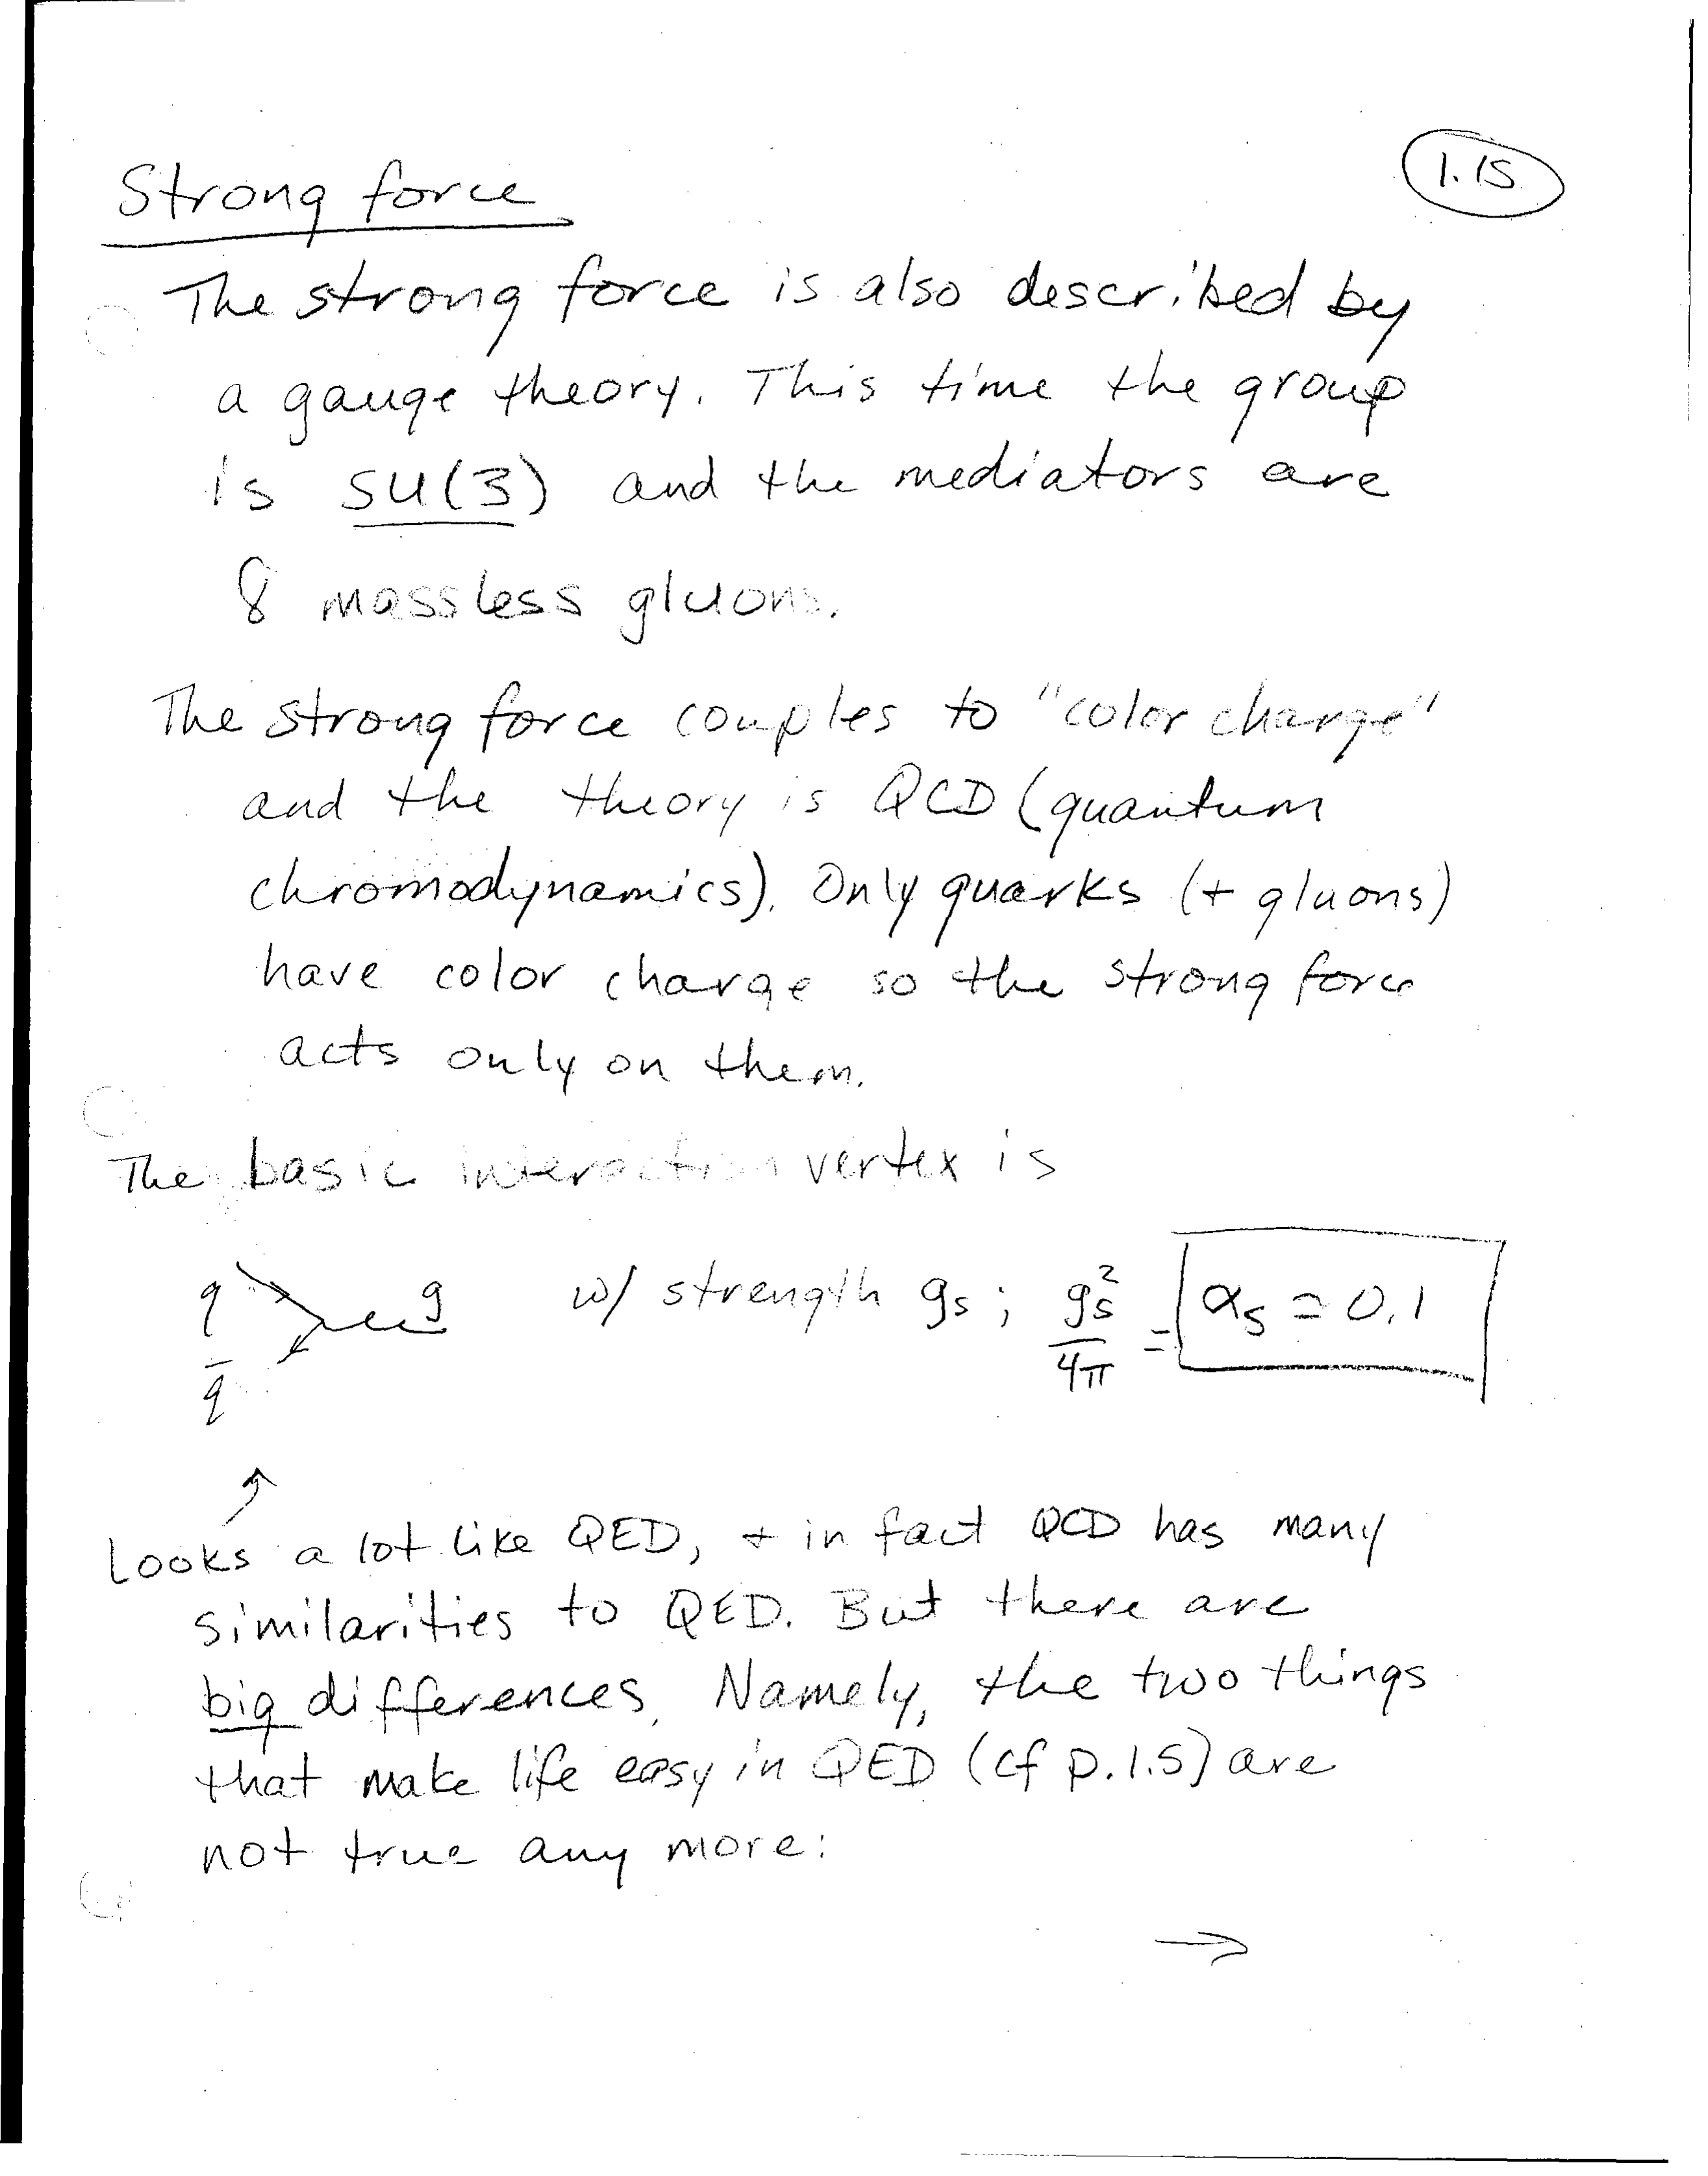 1.15
Strong force
The strong force is also described by
a gauge theory. This time the group
is SU(3) and the mediators are
8 massless gluons.
The strong force couples to "color charge"
and the theory is QCD (quantum
chromodynamics). Only quarks (+ gluons)
have color charge so the strong force
acts only on them.
The basic interaction vertex is
q g w/ strength gs; gs²/4π = αs ≃ 0.1
q̄
Looks a lot like QED, + in fact QCD has many
similarities to QED. But there are
big differences. Namely, the two things
that make life easy in QED (cf p.1.5) are
not true any more:
→